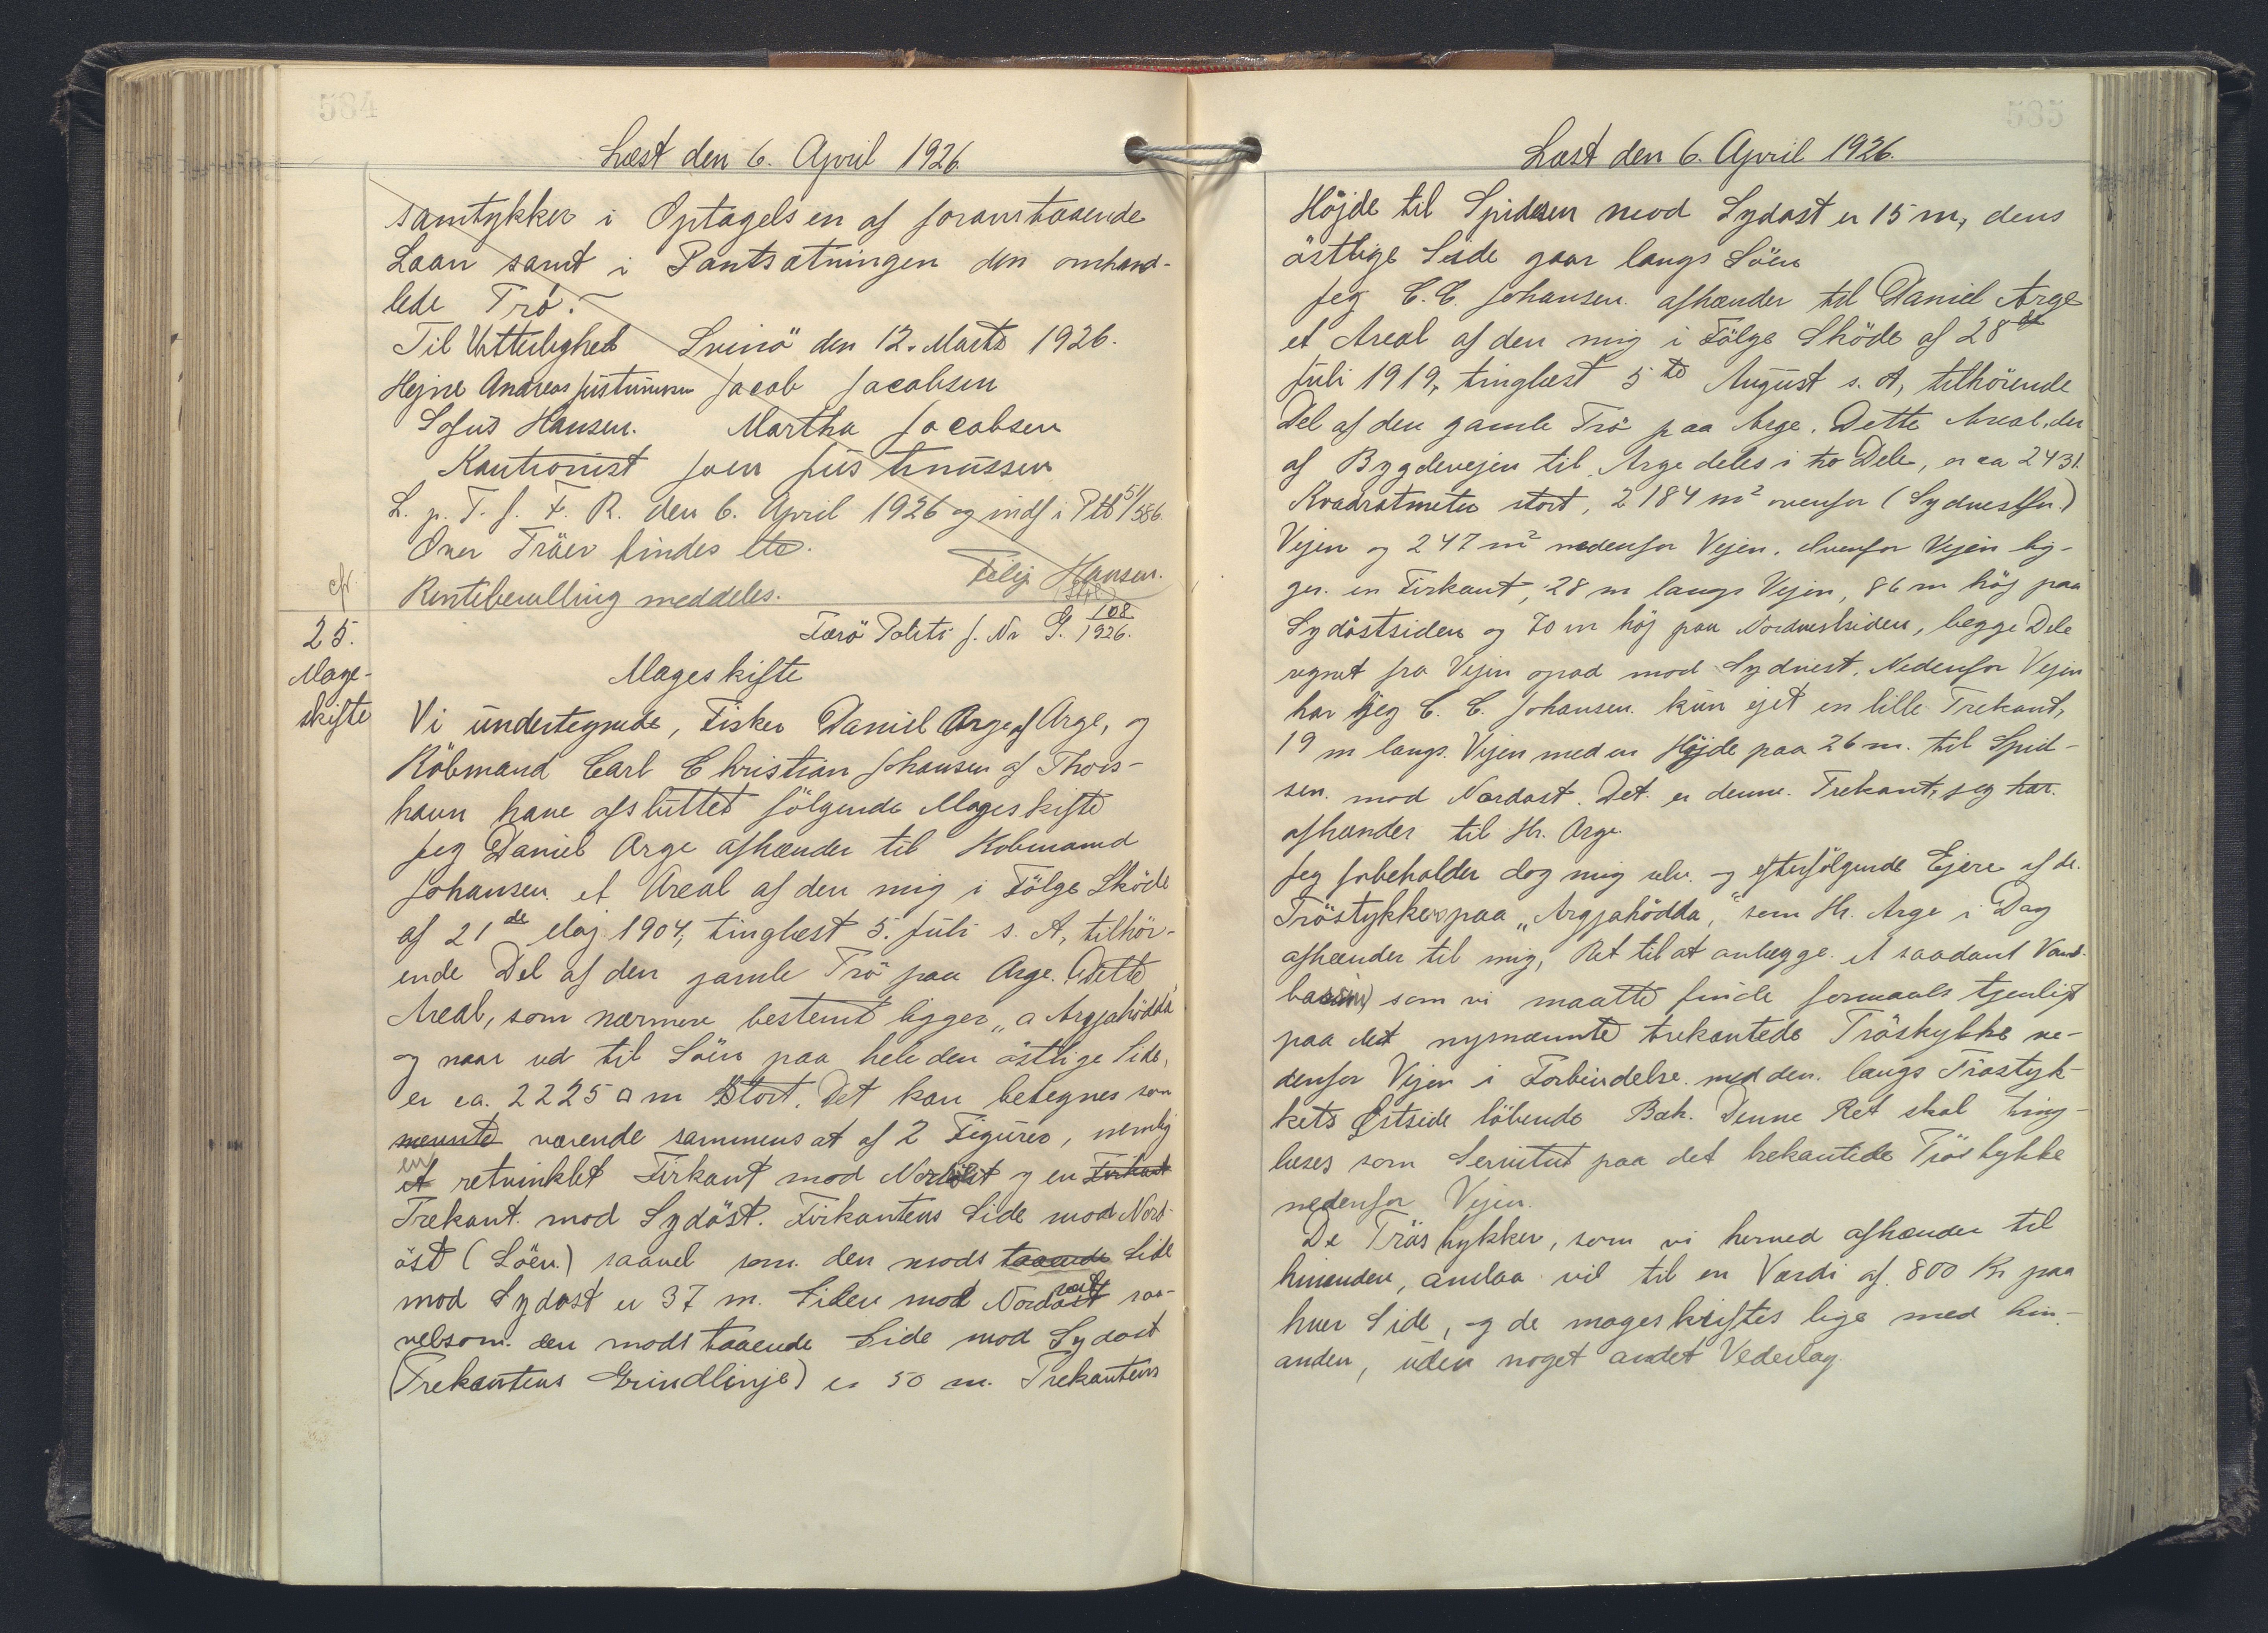 584
Læst den 6. April 1926.
samtykker i Optagelsen af foranstaaende
Laan samt i Pantsætningen den omhand-
lede Trö.
Til Vitterlighed Svinö den 12. Marts 1926.
Hejne Andreas Justinussen Jacob Jacobsen
Sofus Hansen. Martha Jacobsen
Kautionist Joen Justinussen
L. p. T. f. F. R. den 6. April 1926 og indf i Ptb 51/586.
Over Tröen findes etc.
Rentebevilling meddeles. Filip Hansen.
25.
Mage-
skifte
Færö Politi J. Nr G. 108/1926.
Mageskifte
Vi undertegnede, Fisker Daniel Arge af Arge, og
Köbmand Carl Christian Johansen af Thors-
havn have afsluttet fölgende Mageskifte
Jeg Daniel Arge afhænder til Kobmand
Johansen et Areal af den mig i Fölge Sköde
af 21de Maj 1904, tinglæst 5. Juli s. A, tilhör-
ende Del af den gamle Trö paa Arge. Dette
Areal, som nærmere bestemt ligger „a Argjahödda"
og naar ud til Söen paa hele den östlige Side,
er ca. 2225 □ m stort. Det kan betegnes som
nævnte værende sammensat af 2 Figurer, nemlig
en et retvinklet Firkant mod Nordöst og en Firkant
Trekant mod Sydöst. Firkantens Side mod Nord-
öst (Söen) saavel som den modstaaende Side
mod Sydost er 37 m. Siden mod Nordost vest saa-
velsom den modstaaende Side mod Sydost
(Trekantens Grundlinje) er 50 m. Trekantens
585
Læst den 6. April 1926.
Höjde til Spidsen mod Sydost er 15 m, dens
östlige Side gaar langs Söen
Jeg C. C. Johansen afhænder til Daniel Arge
et Areal af den mig i Fölge Sköde af 28de
Juli 1919, tinglæst 5te August s. A, tilhörende
Del af den gamle Trö paa Arge. Dette Areal, der
af Bygdevejen til Arge deles i to Dele, er ca 2431
Kvadratmeter stort, 2184 m² ovenfor (Sydvestfor)
Vejen og 247 m² nedenfor Vejen. Ovenfor Vejen lig-
ger en Firkant, 28 m langs Vejen, 86 m höj paa
Sydöstsiden og 70 m höj paa Nordvestsiden, begge Dele
regnet fra Vejen opad mod Sydvest. Nedenfor Vejen
har jeg C. C. Johansen kun ejet en lille Trekant,
19 m langs Vejen med en Höjde paa 26 m. til Spid-
sen mod Nordost. Det er denne Trekant, jeg har
afhænder til Hr. Arge.
Jeg forbeholder dog mig selv og efterfölgende Ejere af de
Tröstykker paa „Argjahödda," som Hr. Arge i Dag
afhænder til mig, Ret til at anlægge et saadant Vand-
bassin, som vi maatte finde formaals tjenligt
paa det nysnævnte trekantede Tröstykke ne-
denfor Vejen i Forbindelse med den langs Tröstyk-
kets Østside löbende Bæk. Denne Ret skal ting-
læses som Servitut paa det trekantede Tröstykke
nedenfor Vejen.
De Tröstykker, som vi herned afhænder til
hinanden, anslaa vil til en Værdi af 800 Kr paa
hver Side, og de mageskiftes lige med hin-
anden, uden noget andet Vederlag.